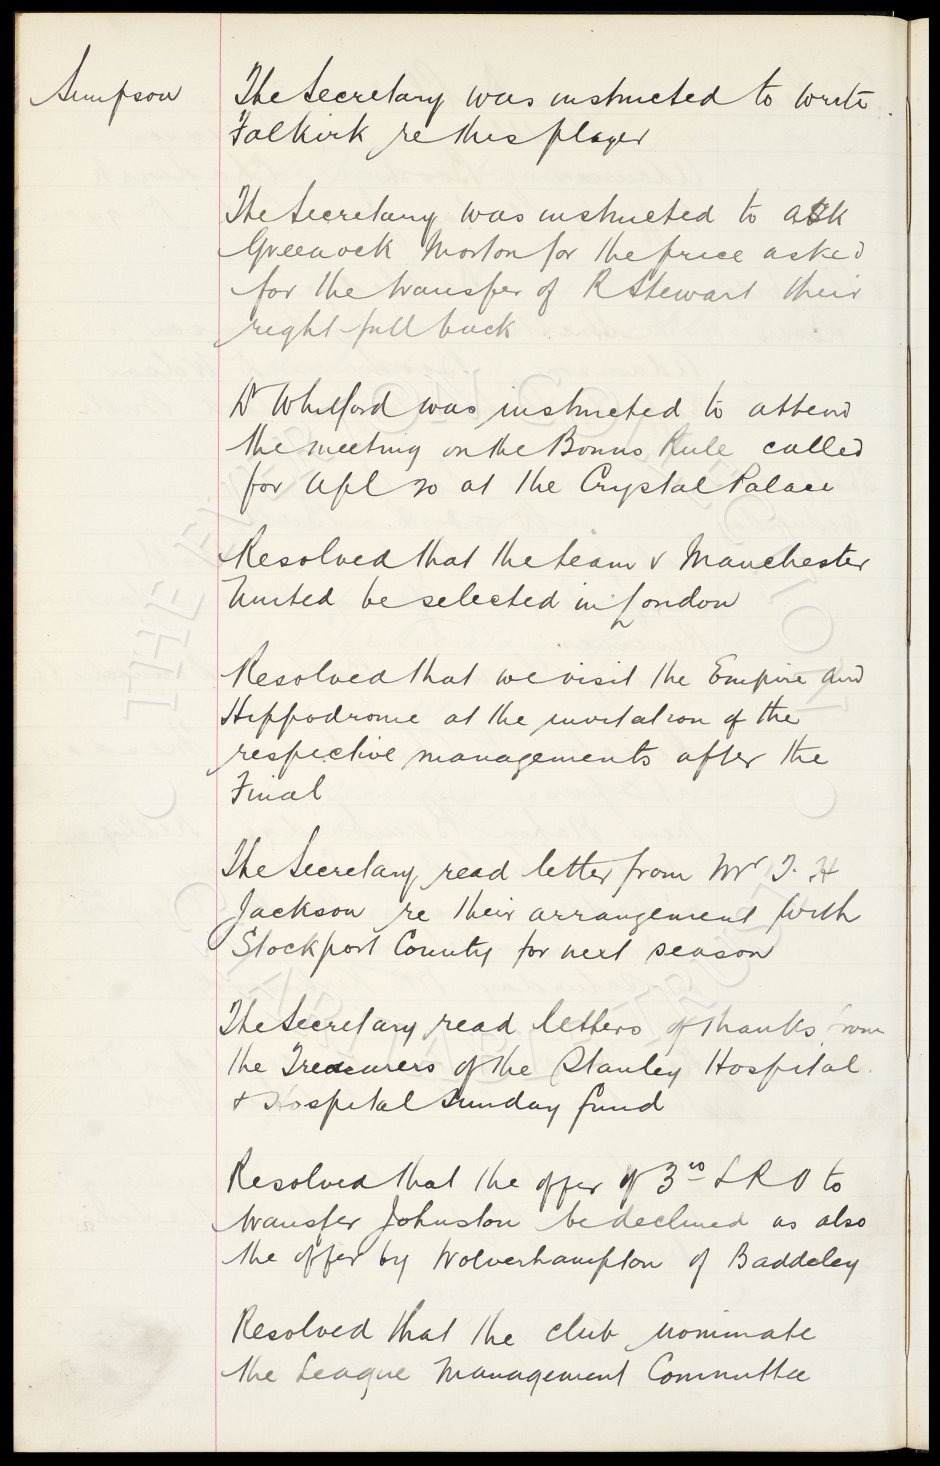 Simpson
The Secretary was instructed to write
Falkirk re this player
The Secretary was instructed to ask
Greenock Morton for the price asked
for the transfer of R Stewart their
right full back
Dr Whitford was instructed to attend
the meeting on the Bonus Rule called
for Apl 20 at the Crystal Palace
Resolved that the team v Manchester
United be selected in London
Resolved that we visit the Empire and
Hippodrome at the invitation of the
respective managements after the
Final
The Secretary read letter from Mr T. H
Jackson re their arrangement with
Stockport County for next season
The Secretary read letters of thanks from
the Treasurers of the Stanley Hospital
& Hospital Sunday fund
Resolved that the offer of 3rd L R V to
transfer Johnston be declined as also
the offer by Wolverhampton of Baddeley
Resolved that the club nominate
the League Management Committee